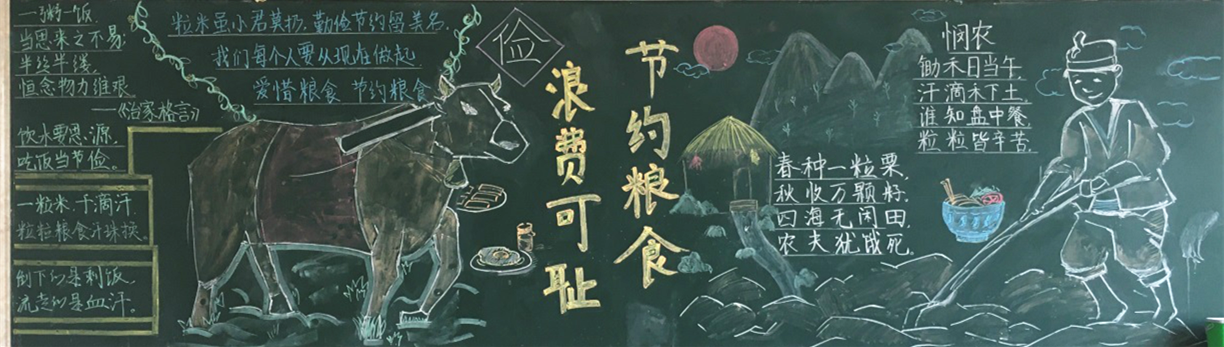 一粥一饭,
当思来之不易;
半丝半缕,
恒念物力维艰。
——《治家格言》
饮水要思源,
吃饭当节俭。
一粒米,千滴汗,
粒粒粮食汗珠换。
倒下的是剩饭,
流走的是血汗。
粒米虽小君莫扔,勤俭节约留美名,
我们每个人要从现在做起
爱惜粮食 节约粮食
俭
浪费可耻
节约粮食
悯农
锄禾日当午,
汗滴禾下土,
谁知盘中餐,
粒粒皆辛苦。
春种一粒粟,
秋收万颗籽,
四海无闲田,
农夫犹饿死。